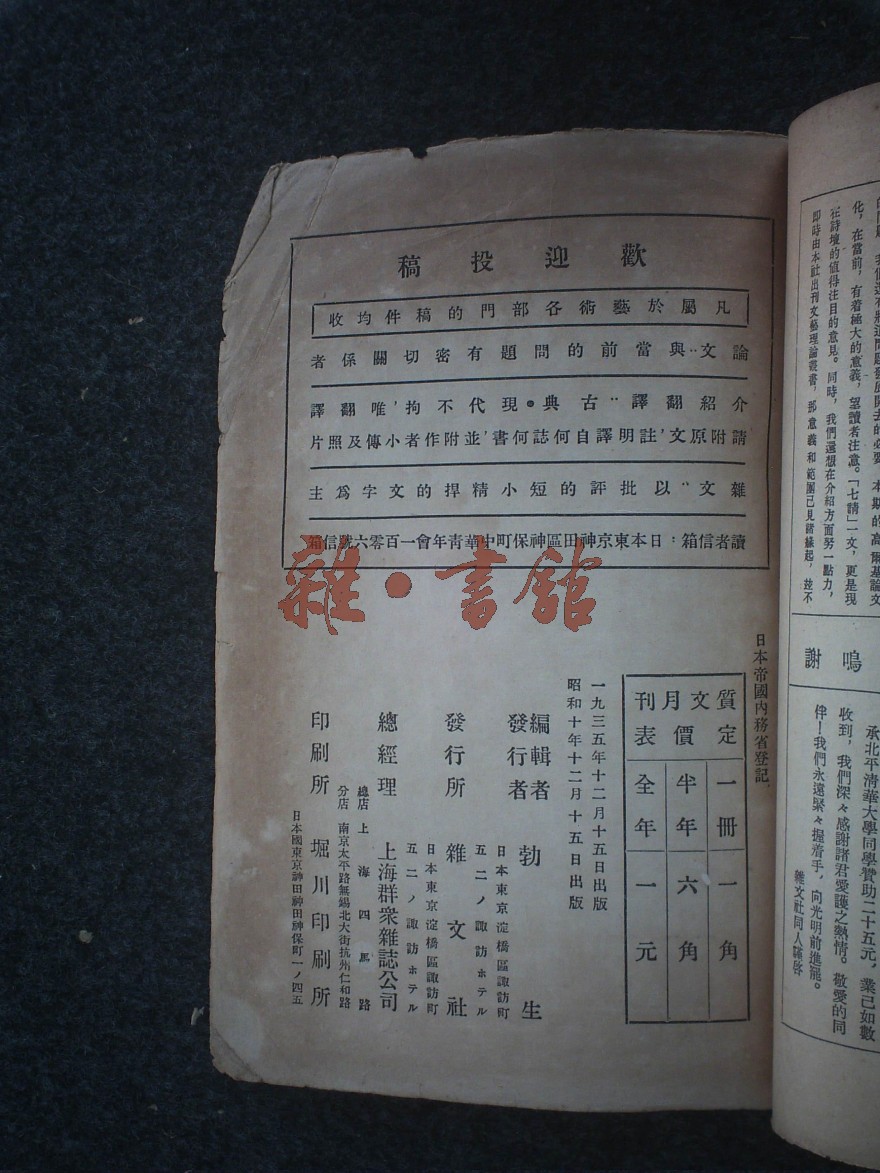 的問題，我們還有將這問題發展開去的必要，本期的高爾基論文
化，在當前，有着極大的意義，望讀者注意。「七請」一文，更是現
在詩壇的值得注目的意見。同時，我們還想在介紹方面努一點力，
即時由本社出刊文藝理論叢書，那意義和範圍已見諸緣起，茲不
鳴謝
承北平清華大學同學贊助二十五元，業已如數
收到，我們深々感謝諸君愛護之熱情。敬愛的同
伴！我們永遠緊々握着手，向光明前進罷。
雜文社同人謹啓
歡迎投稿
凡屬於藝術各部門的稿件均收
論文：與當前的問題有密切關係者
介紹翻譯：古典・現代不拘，唯翻譯
請附原文，註明譯自何誌何書，並附作者小傳及照片
雜文：以批評的短小精捍的文字爲主
讀者信箱：日本東京神田區神保町中華青年會一百零六號信箱
雜・書館
日本帝國內務省登記
質文月刊
定價表
一冊 一角
半年 六角
全年 一元
一九三五年十二月十五日出版
昭和十年十二月十五日出版
編輯者
發行者 勃生
日本東京淀橋區諏訪町
五二ノ諏訪ホテル
發行所 雜文社
日本東京淀橋區諏訪町
五二ノ諏訪ホテル
總經理 上海群衆雜誌公司
總店 上海四馬路
分店 南京太平路無錫北大街抗州仁和路
印刷所 堀川印刷所
日本國東京神田神田神保町一ノ四五